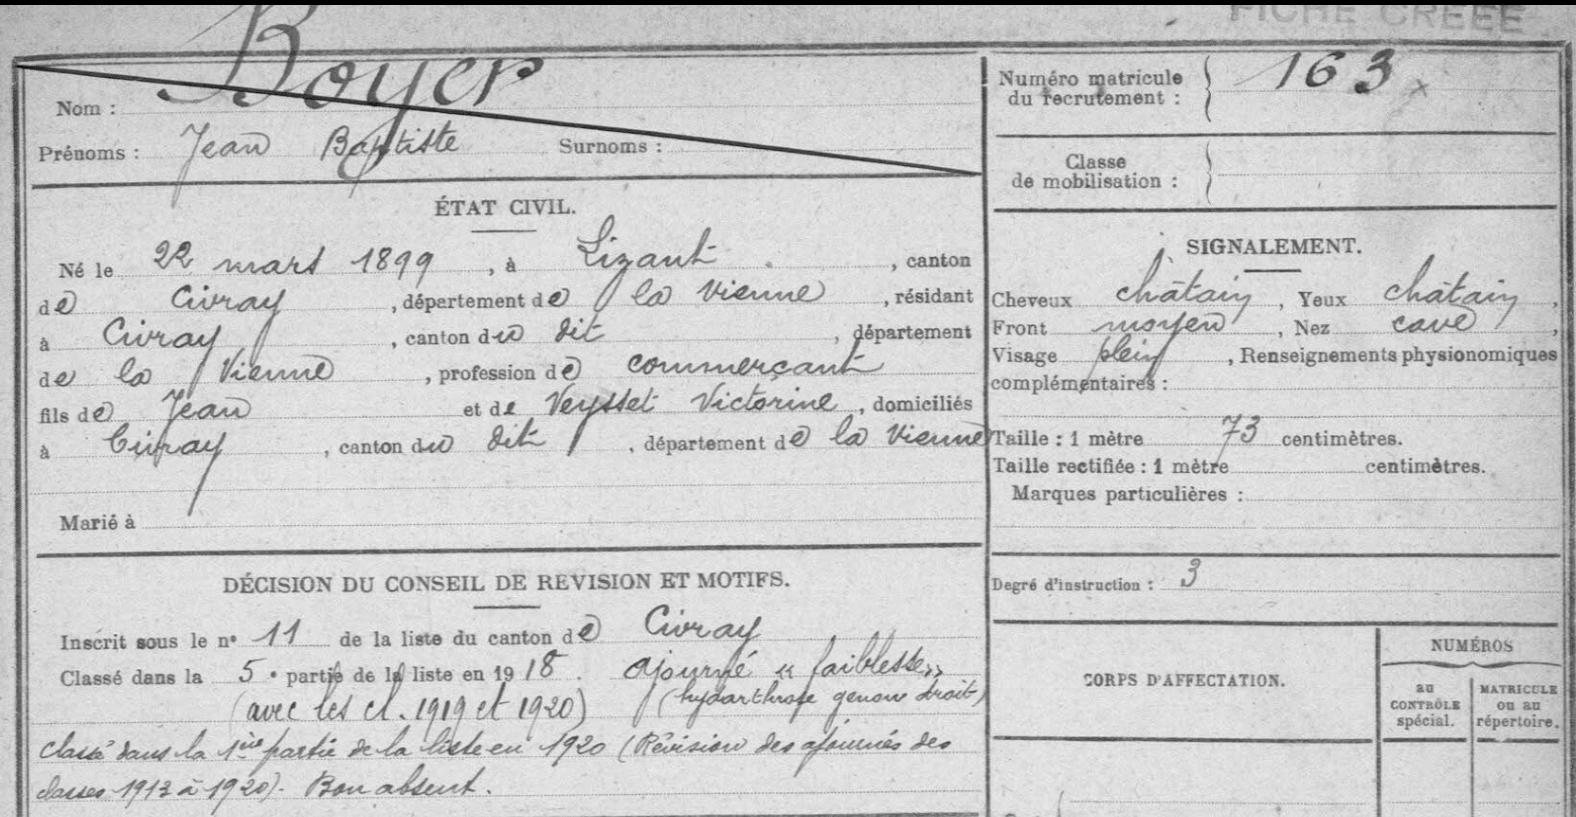 FICHE CRÉÉE
Nom : Boyer
Prénoms : Jean Baptiste Surnoms :
ÉTAT CIVIL.
Né le 22 mars 1899, à Lizant, canton
de Civray, département de la Vienne, résidant
à Civray, canton du dit, département
de la Vienne, profession de commerçant
fils de Jean et de Veysset Victorine, domiciliés
à Civray, canton du dit, département de la Vienne
Marié à
DÉCISION DU CONSEIL DE REVISION ET MOTIFS.
Inscrit sous le n° 11 de la liste du canton de Civray
Classé dans la 5e partie de la liste en 1918. ajourné « faiblesse »
(avec les cl. 1919 et 1920) (hydarthrose genou droit)
Classé dans la 1ère partie de la liste en 1920 (Révision des ajournés des
classes 1913 à 1920). Bon absent.
Numéro matricule
du recrutement : 163
Classe
de mobilisation :
SIGNALEMENT.
Cheveux châtain, Yeux châtain,
Front moyen, Nez cave,
Visage plein, Renseignements physionomiques
complémentaires :
Taille : 1 mètre 73 centimètres.
Taille rectifiée : 1 mètre centimètres.
Marques particulières :
Degré d'instruction : 3
CORPS D'AFFECTATION.
NUMÉROS
au
CONTRÔLE
spécial.
MATRICULE
ou au
répertoire.